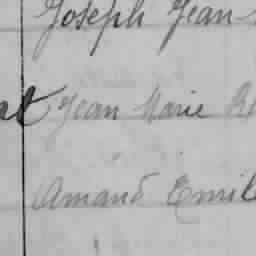 Joseph Jean
Jean Marie
Amand Emile